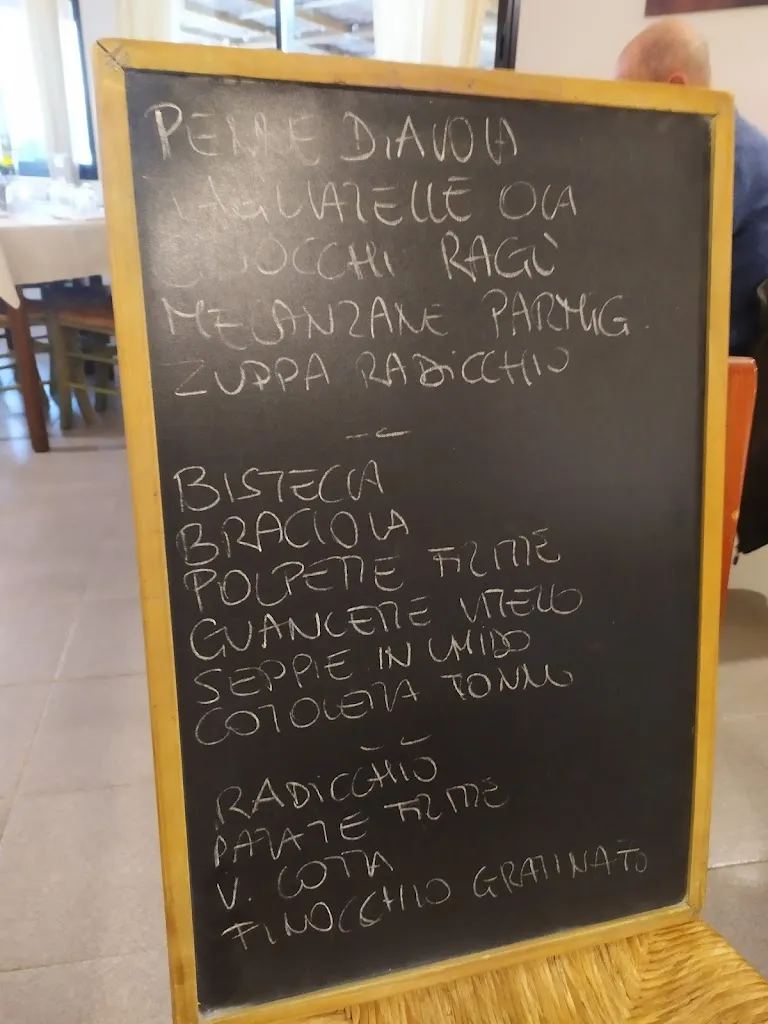 PENNE DIAVOLA
TAGLIATELLE OCA
GNOCCHI RAGÙ
MELANZANE PARMIG.
ZUPPA RADICCHIO
BISTECCA
BRACIOLA
POLPETTE FRITTE
GUANCETTE VITELLO
SEPPIE IN UMIDO
COTOLETTA TONNO
RADICCHIO
PATATE FRITTE
V. COTTA
FINOCCHIO GRATINATO